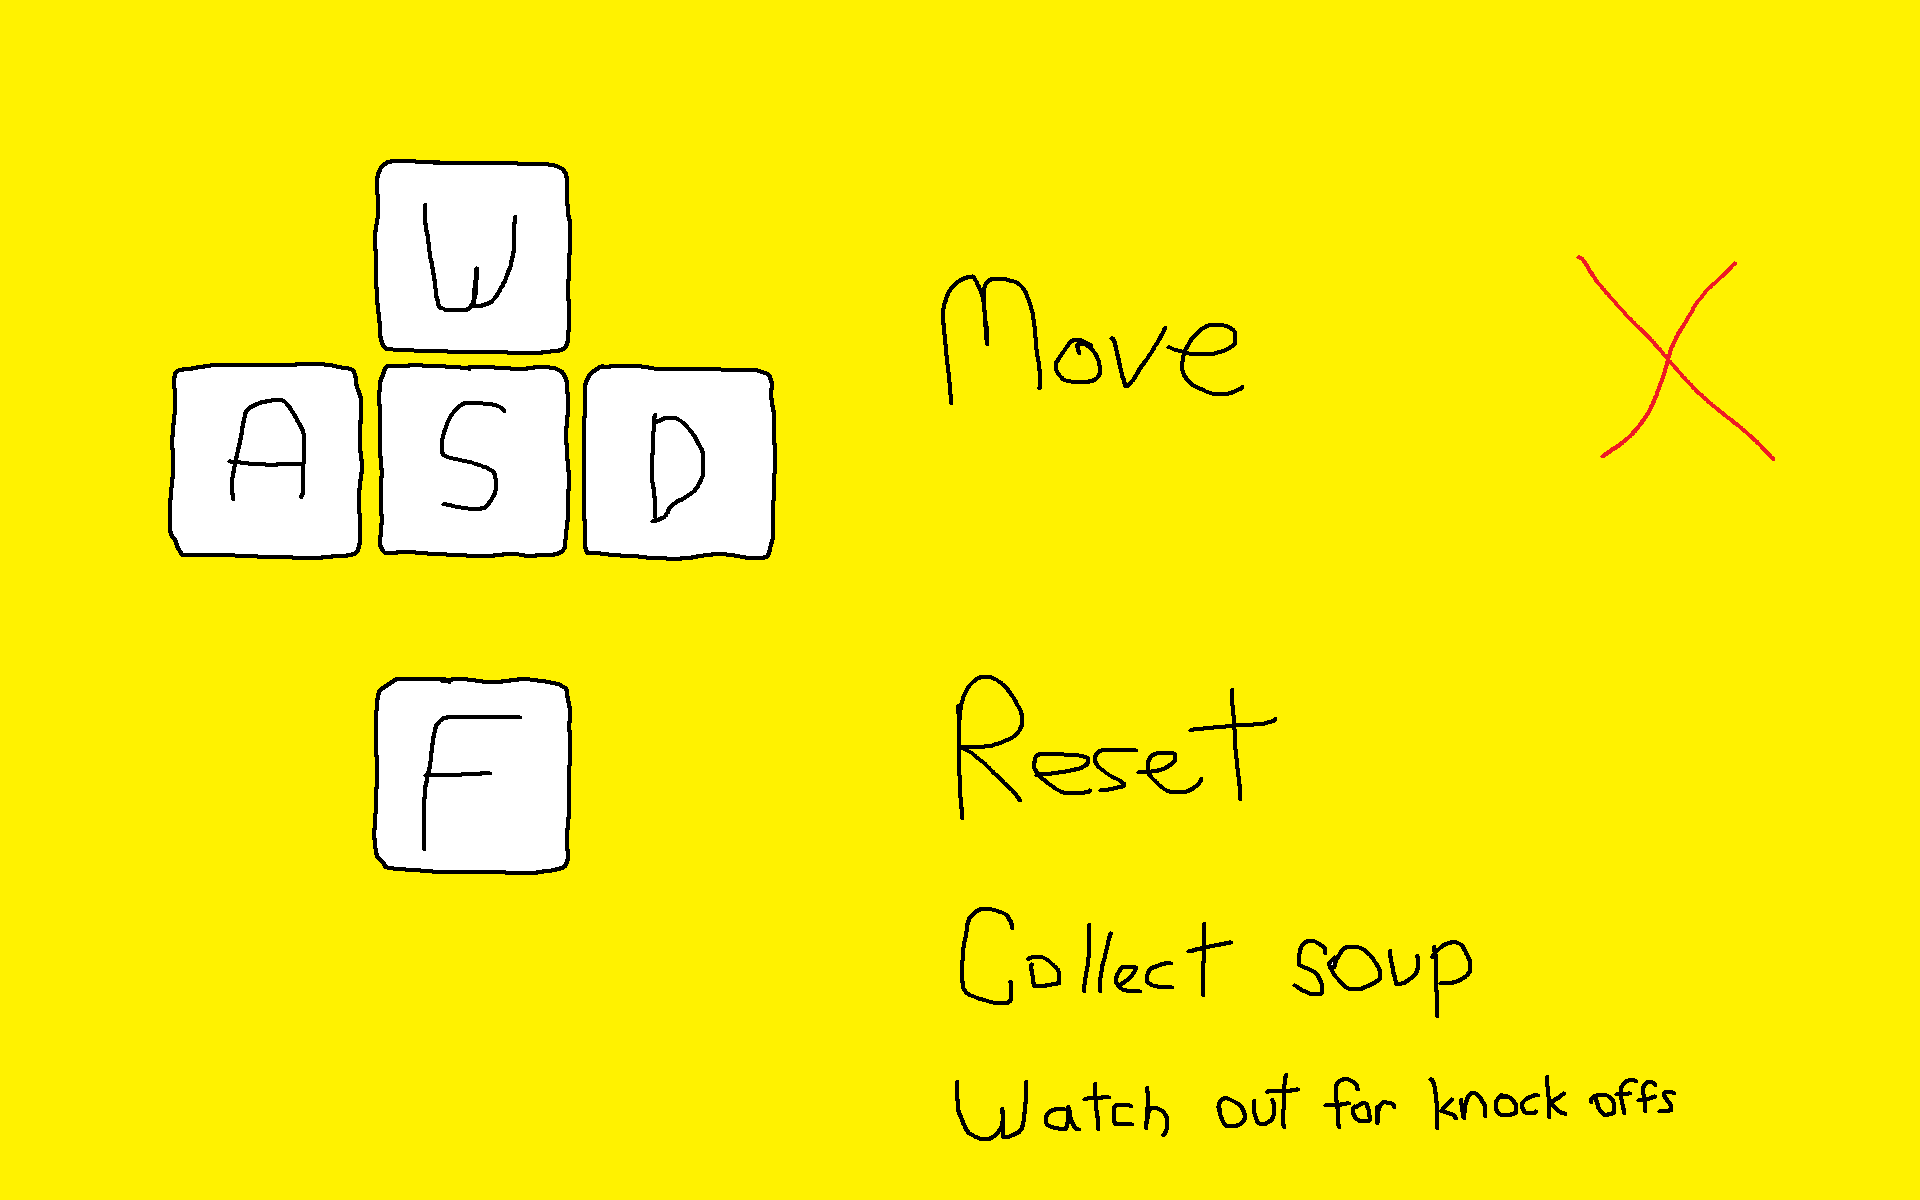 W
Move
A S D
F
Reset
Collect soup
Watch out for knock offs